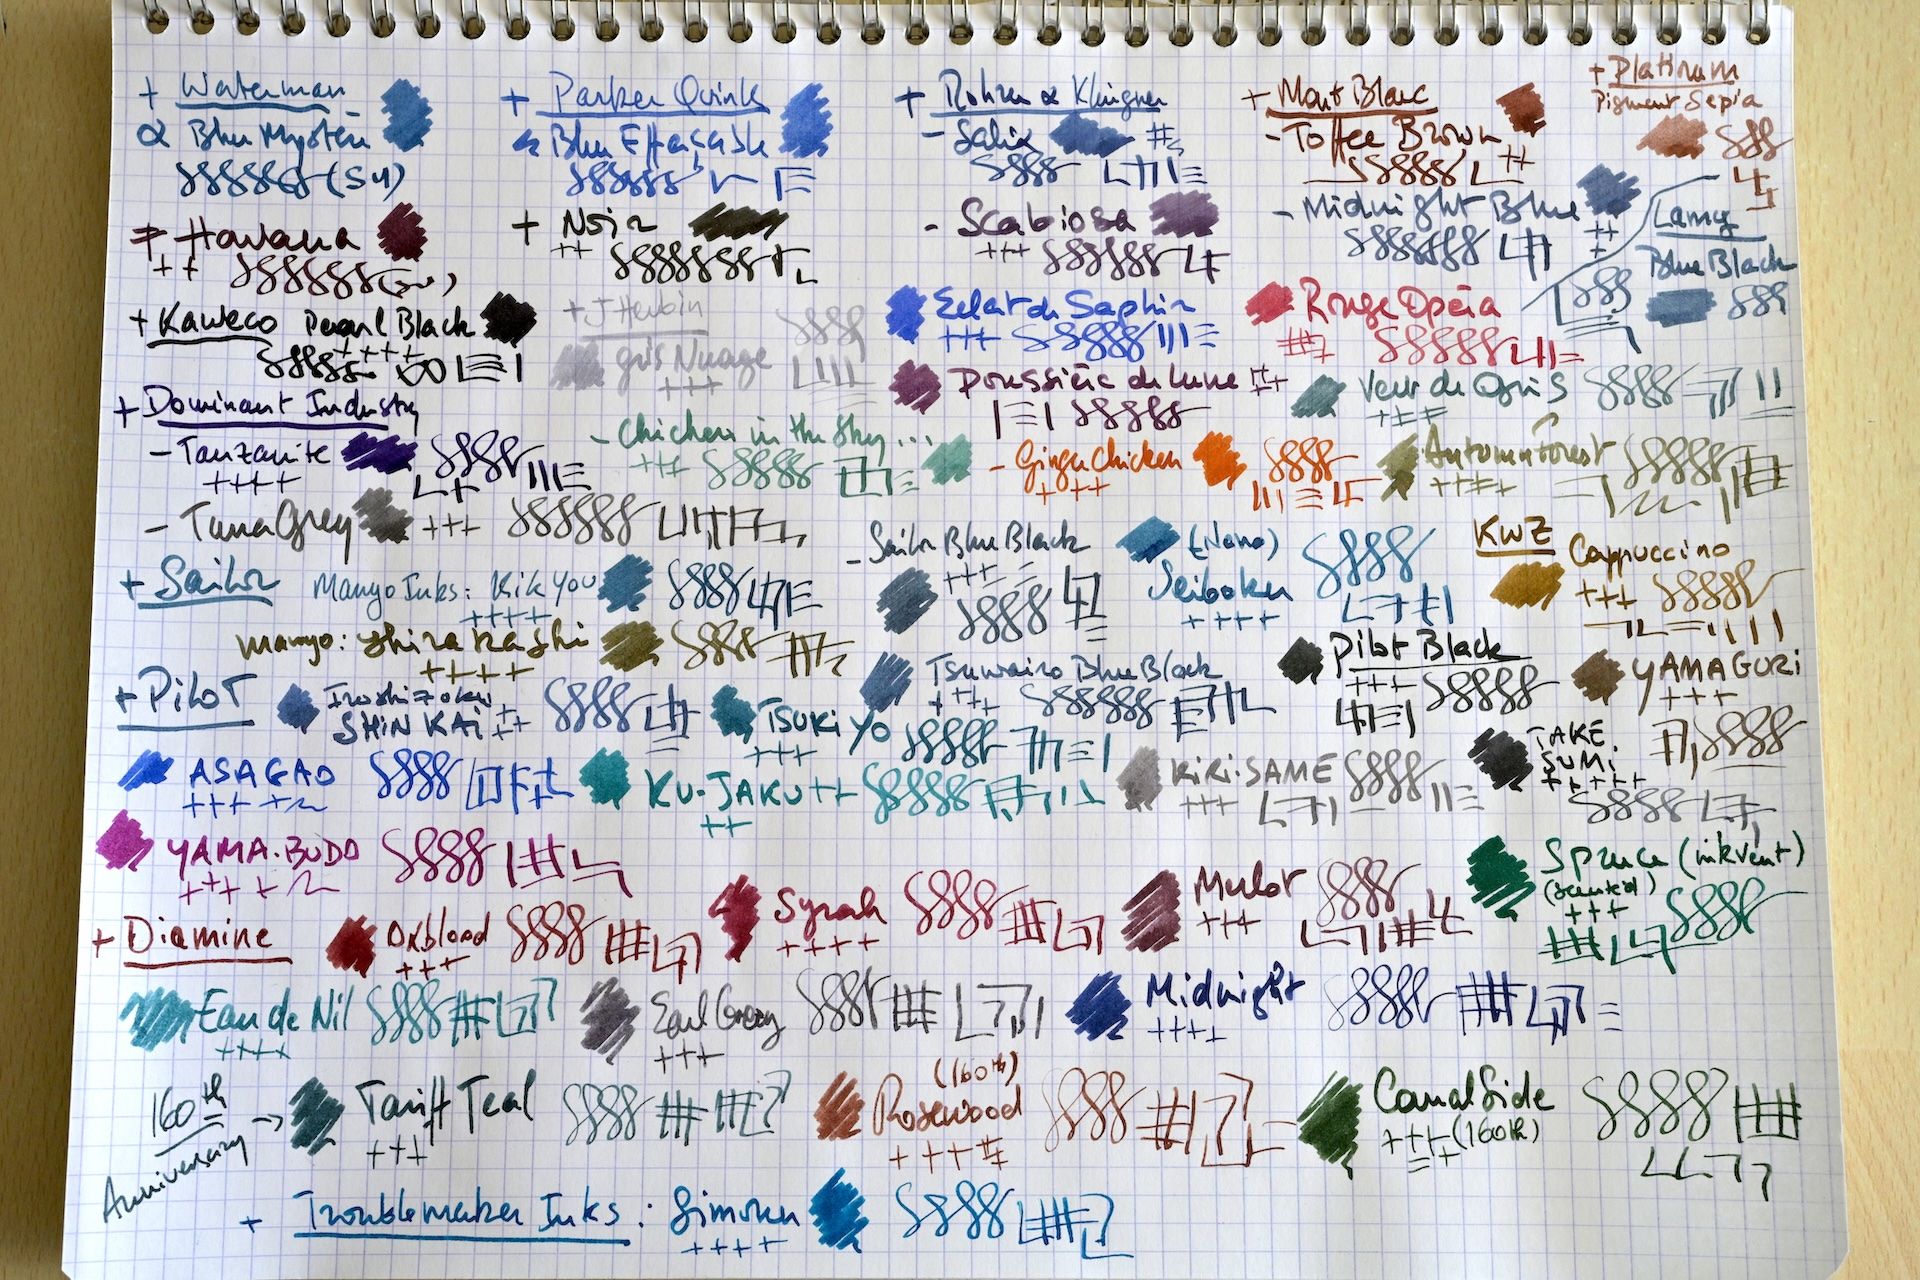 + Waterman
Bleu Mystère
+ Havana
+ Parker Quink
Bleu Effaçable
+ Noir
+ Rohrer & Klingner
- Salix
- Scabiosa
+ Mont Blanc
- Toffee Brown
- Midnight Blue
+ Platinum
Pigment Sepia
Lamy
Blue Black
+ Kaweco Pearl Black
+ J Herbin
gris Nuage
Eclat de Saphir
Rouge Opéra
Poussière de Lune
Vert de Gris
+ Dominant Industry
- Tanzanite
- Chicken in the Sky...
- Ginger Chicken
Autumn Forest
- Tuna Grey
+ Sailor
Manyo Inks: Kikyou
- Sailor Blue Black
(Nano)
Seiboku
KWZ
Cappuccino
Manyo: Shirakashi
+ Pilot
Iroshizoku
SHIN KAI
TSUKI YO
Tsuwairo Blue Black
Pilot Black
YAMAGURI
ASAGAO
KU-JAKU
KIRI-SAME
TAKE.
SUMI
YAMA-BUDO
+ Diamine
Oxblood
Syrah
Merlot
Spruce (inkvent)
(scented)
Eau de Nil
Earl Grey
Midnight
160th
Anniversary →
Tariff Teal
(160th)
Rosewood
Canal Side
(160th)
+ Troublemaker Inks: